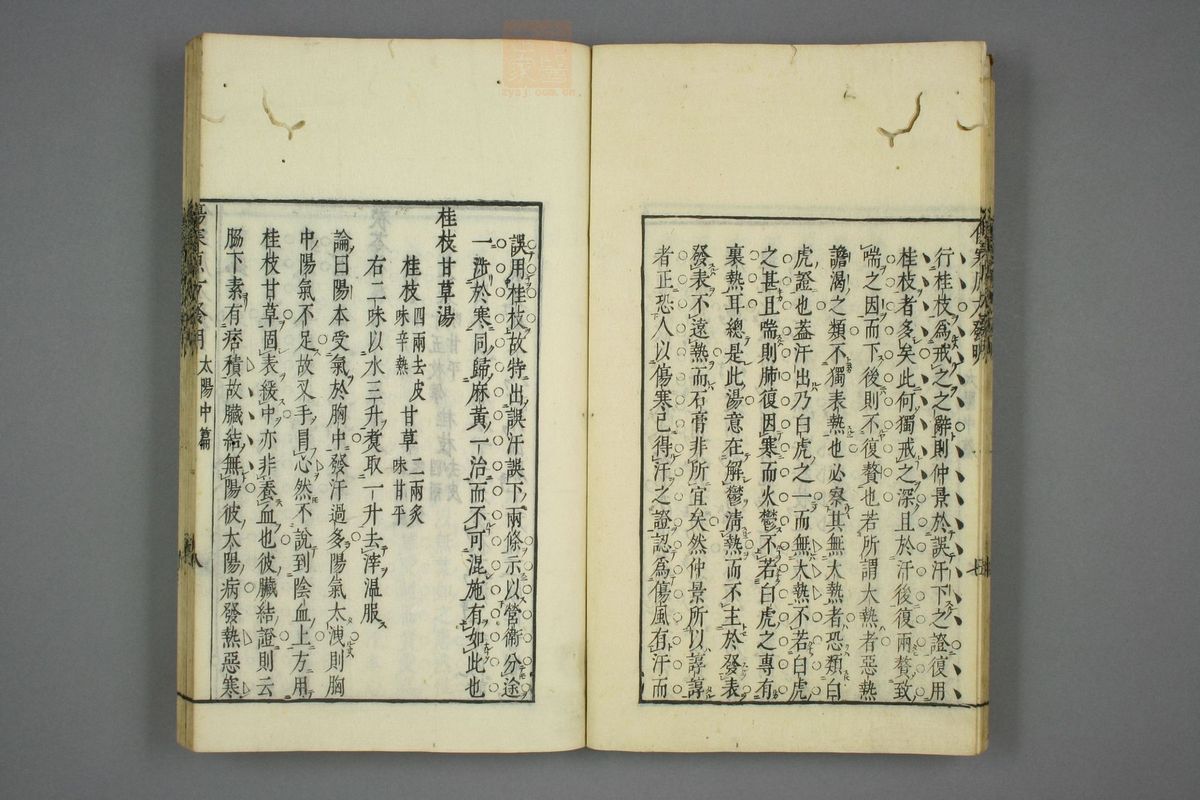 行桂枝爲戒之之辭則仲景於誤汗下之證復用
桂枝者多矣此何獨戒之深且於汗後復兩贅致
喘之因而下後則不復贅也若所謂大熱者惡熱
譫渴之類不獨表熱也必察其無大熱者恐類白
虎證也蓋汗出乃白虎之一而無大熱不若白虎
之甚且喘則肺復因寒而火鬱不若白虎之專有
裏熱耳總是此湯意在解鬱清熱而不主於發表
發表不遠熱而石膏非所宜矣然仲景所以諄諄
者正恐人以傷寒已得汗之證認爲傷風有汗而
誤用桂枝故特出誤汗誤下兩條示以營衛分途
一涉於寒同歸麻黃一治而不可混施有如此也
桂枝甘草湯
桂枝四兩去皮味辛熱 甘草二兩炙味甘平
右二味以水三升煑取一升去滓温服
論曰陽本受氣於胸中發汗過多陽氣太洩則胸
中陽氣不足故叉手冒心然不說到陰血上方用
桂枝甘草固表緩中亦非養血也彼臟結證則云
脇下素有痞積故臟結無陽彼太陽病發熱惡寒
太陽中篇
八